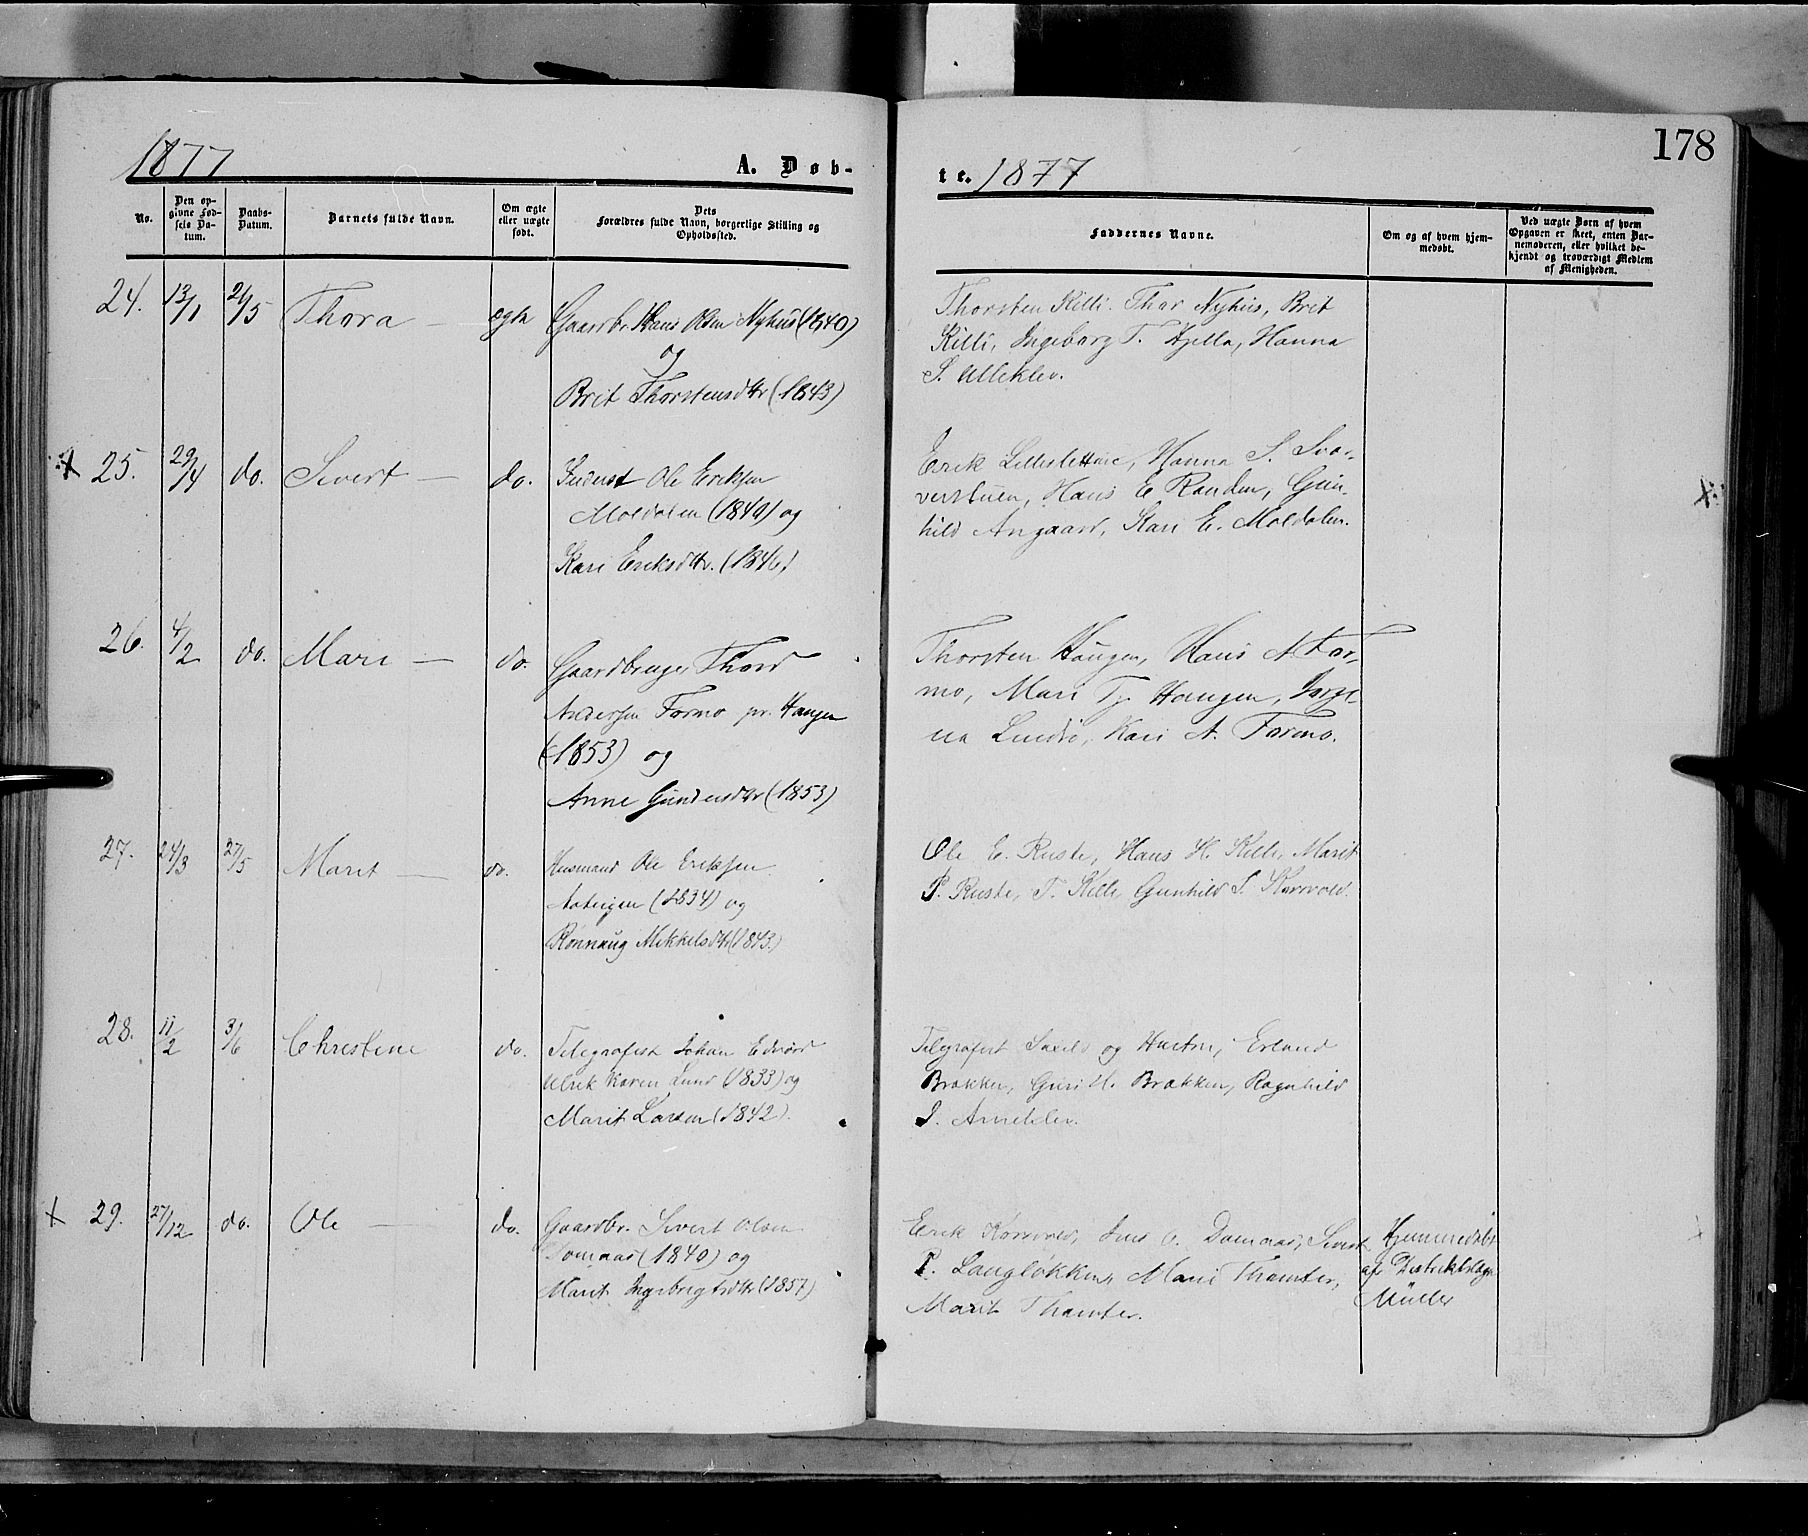 178
1877
A. Døb-
te. 1877
No.
Den op-
givne Fød-
sels Da-
tum.
Daabs-
Datum.
Barnets fulde Navn.
Om ægte
eller uægte
født.
Dets
Forældres fulde Navn, borgerlige Stilling og
Opholdssted.
Faddernes Navne.
Om og af hvem hjem-
medøbt.
Ved uægte Børn af hvem
Opgaven er skeet, enten Bar-
nemoderen, eller hvilket be-
kjendt og troværdigt Medlem
af Menigheden.
24. 13/1 21/5 Thora — ægte Gaardbr. Hans Olsen Nyhus (1840)
og
Brit Thorstensdtr (1843)
Thorsten Killi. Thor Nyhus, Brit
Killi, Ingeborg T. Hjelle, Hanna
S. Ulleklev.
25. 29/4 do. Sivert — do. Inderst Ole Eriksen
Moldalen (1840) og
Kari Eriksdtr. (1846)
Erik Hanna S.
Hans E. Randen, Gun-
hild Angaard, Kari E. Moldalen.
26. 4/2 do. Mari — do. Gaardbruger Thord
Andersen Formo pr. Haugen
(1853) og
Anne Gundersdtr (1853)
Thorsten Haugen, Hans A For-
mo, Mari Tj. Haugen,
Kari A. Formo.
27. 24/3 27/5 Marit — do. Husmand Ole Eriksen
(1834) og
Rønnaug Mikkelsdtr (1843.)
Ole E. Ruste, Hans H. Killi, Marit
P. Ruste, T. Killi, Gunhild S. Korsvold.
28. 11/2 3/6 Christine do. Telegrafist Johan Edvard
Ulrik Lund (1833) og
Marit Larsen (1842).
Telegrafist og Hustru, Erland
Brækken, Guri H. Brækken, Ragnhild
29. 27/12 do. Ole — do. Gaardbr. Sivert Olsen
Domaas (1840) og
Marit Ingebrigtsdtr (1857)
Erik Korsvold, Jens O. Domaas, Sivert
P. Langløkken, Mari Thamter,
Marit Thamter.
Hjemmedøbt
af Distriktslæge
Müller